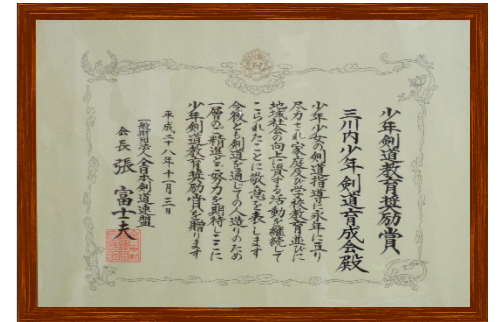 少年剣道教育奨励賞
三川内少年剣道育成会殿
少年少女の剣道指導に永年に亘り
尽力され家庭及び学校教育並びに
地域社会の向上に資する活動を継続して
こられたことに敬意を表します
今後とも剣道を通じての人造りのため
一層のご精進とご努力を期待しここに
少年剣道教育奨励賞を贈ります
平成二十八年十一月三日
一般財団法人全日本剣道連盟
会長 張 富士夫